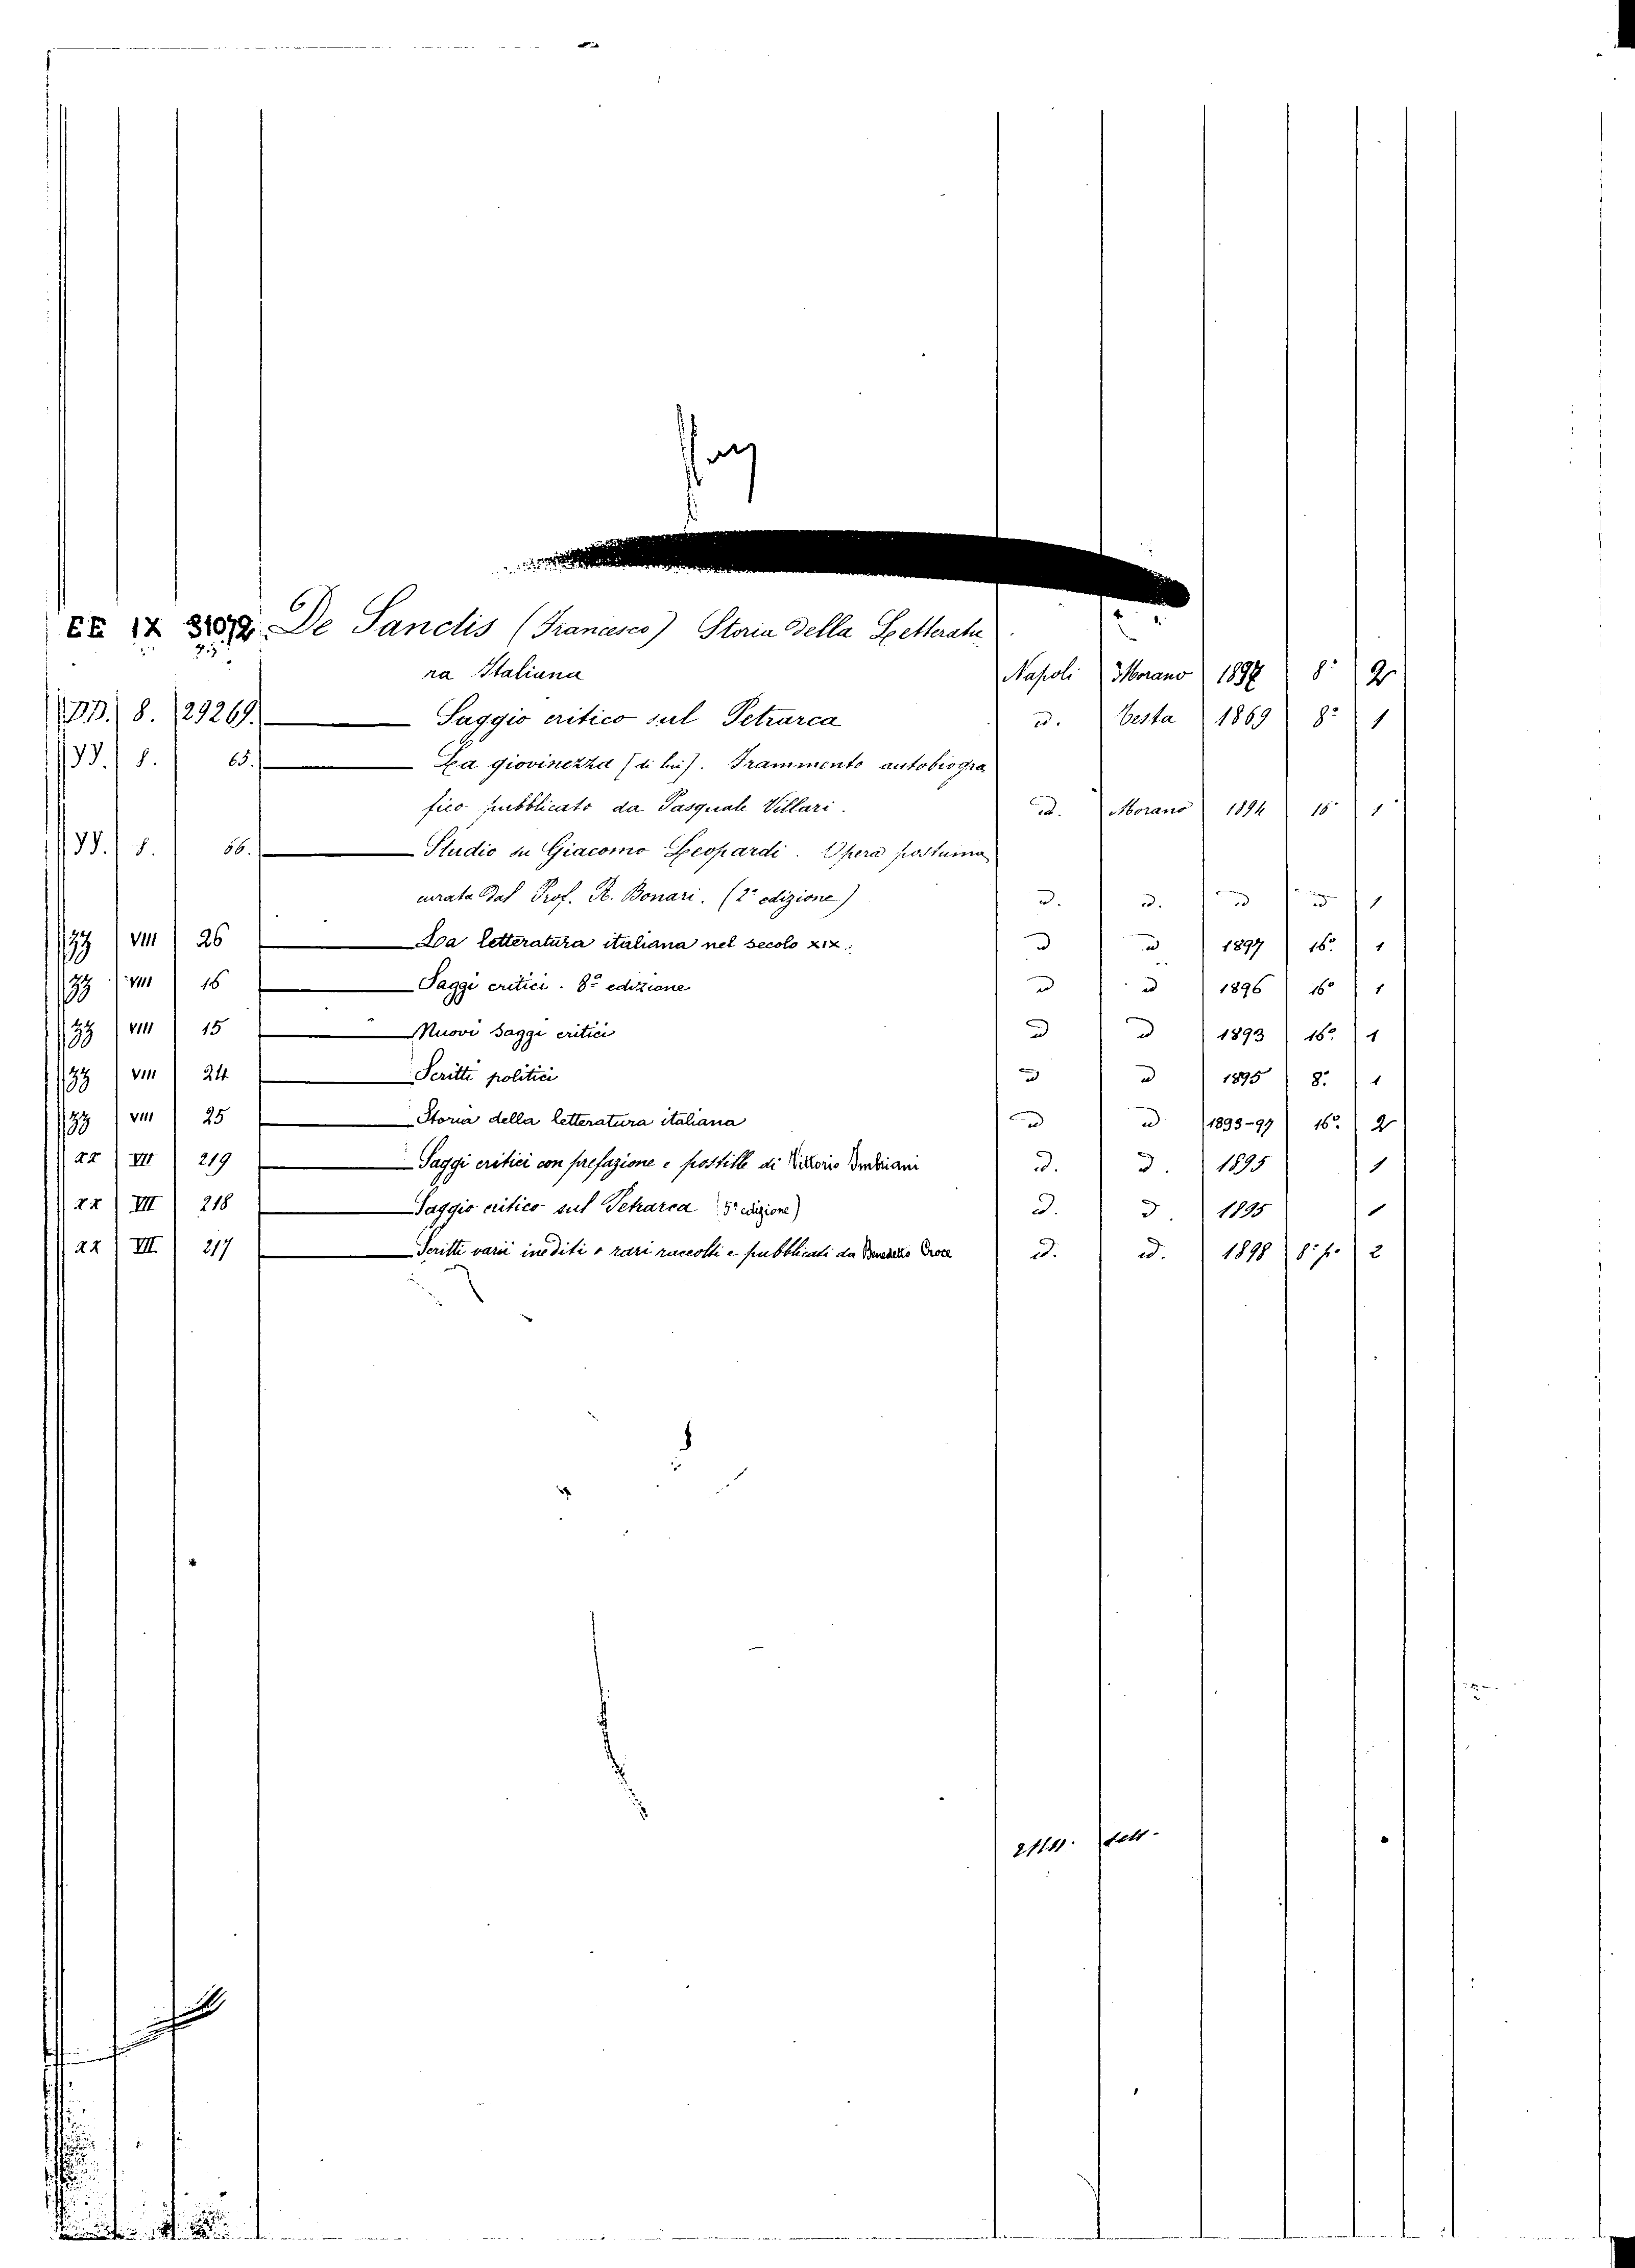 EE IX 31072 De Sanctis (Francesco) Storia della Letteratu
ra Italiana Napoli Morano 1897 8º 2
DD. 8. 29269. Saggio critico sul Petrarca id. Testa 1869 8º 1
YY. 8. 65. La giovinezza (di lui). Frammento autobiogra
fico pubblicato da Pasquale Villari. id. Morano 1894 16 1
YY. 8. 66. Studio su Giacomo Leopardi. Opera postuma
curata dal Prof. R. Bonari. (2ª edizione) id. id. id id 1
VIII 26 La letteratura italiana nel secolo XIX. id id 1897 16º 1
VIII 16 Saggi critici. 8ª edizione id id 1896 16º 1
VIII 15 Nuovi saggi critici id id 1893 16º 1
VIII 24 Scritti politici id id 1895 8º 1
VIII 25 Storia della letteratura italiana id id 1893-97 16º 2
VII 219 Saggi critici con prefazione e postille di Vittorio Imbriani id. id. 1895 1
VII 218 Saggio critico sul Petrarca (5ª edizione) id. id. 1895 1
VII 217 Scritti varii inediti o rari raccolti e pubblicati da Benedetto Croce id. id. 1898 8º p. 2